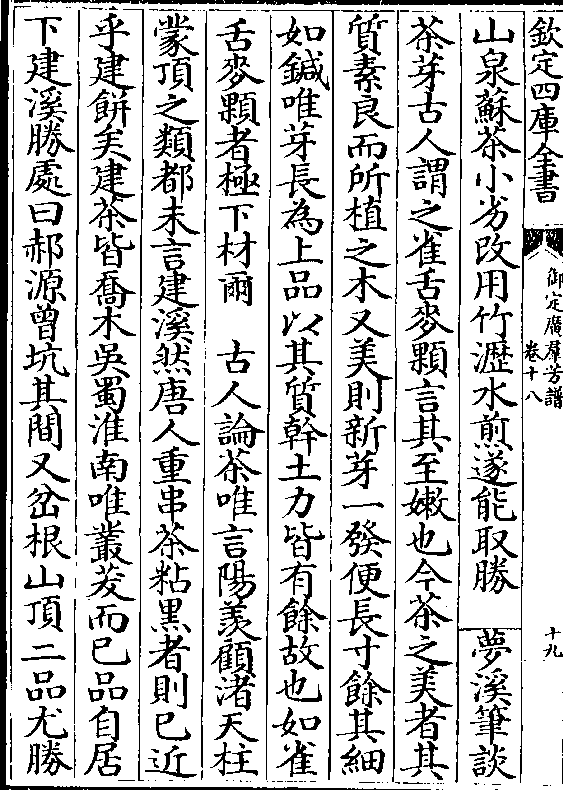 欽定四庫全書
御定廣羣芳譜
卷十八
十九
山泉蘇茶小劣改用竹瀝水煎遂能取勝　夢溪筆談
茶芽古人謂之雀舌麥顆言其至嫩也今茶之美者其
質素良而所植之木又美則新芽一發便長寸餘其細
如鍼唯芽長為上品以其質幹土力皆有餘故也如雀
舌麥顆者極下材爾　古人論茶唯言陽羨顧渚天柱
蒙頂之類都未言建溪然唐人重串茶粘黒者則已近
乎建餅矣建茶皆喬木吳蜀淮南唯叢茇而已品自居
下建溪勝處曰郝源曾坑其間又岔根山頂二品尤勝